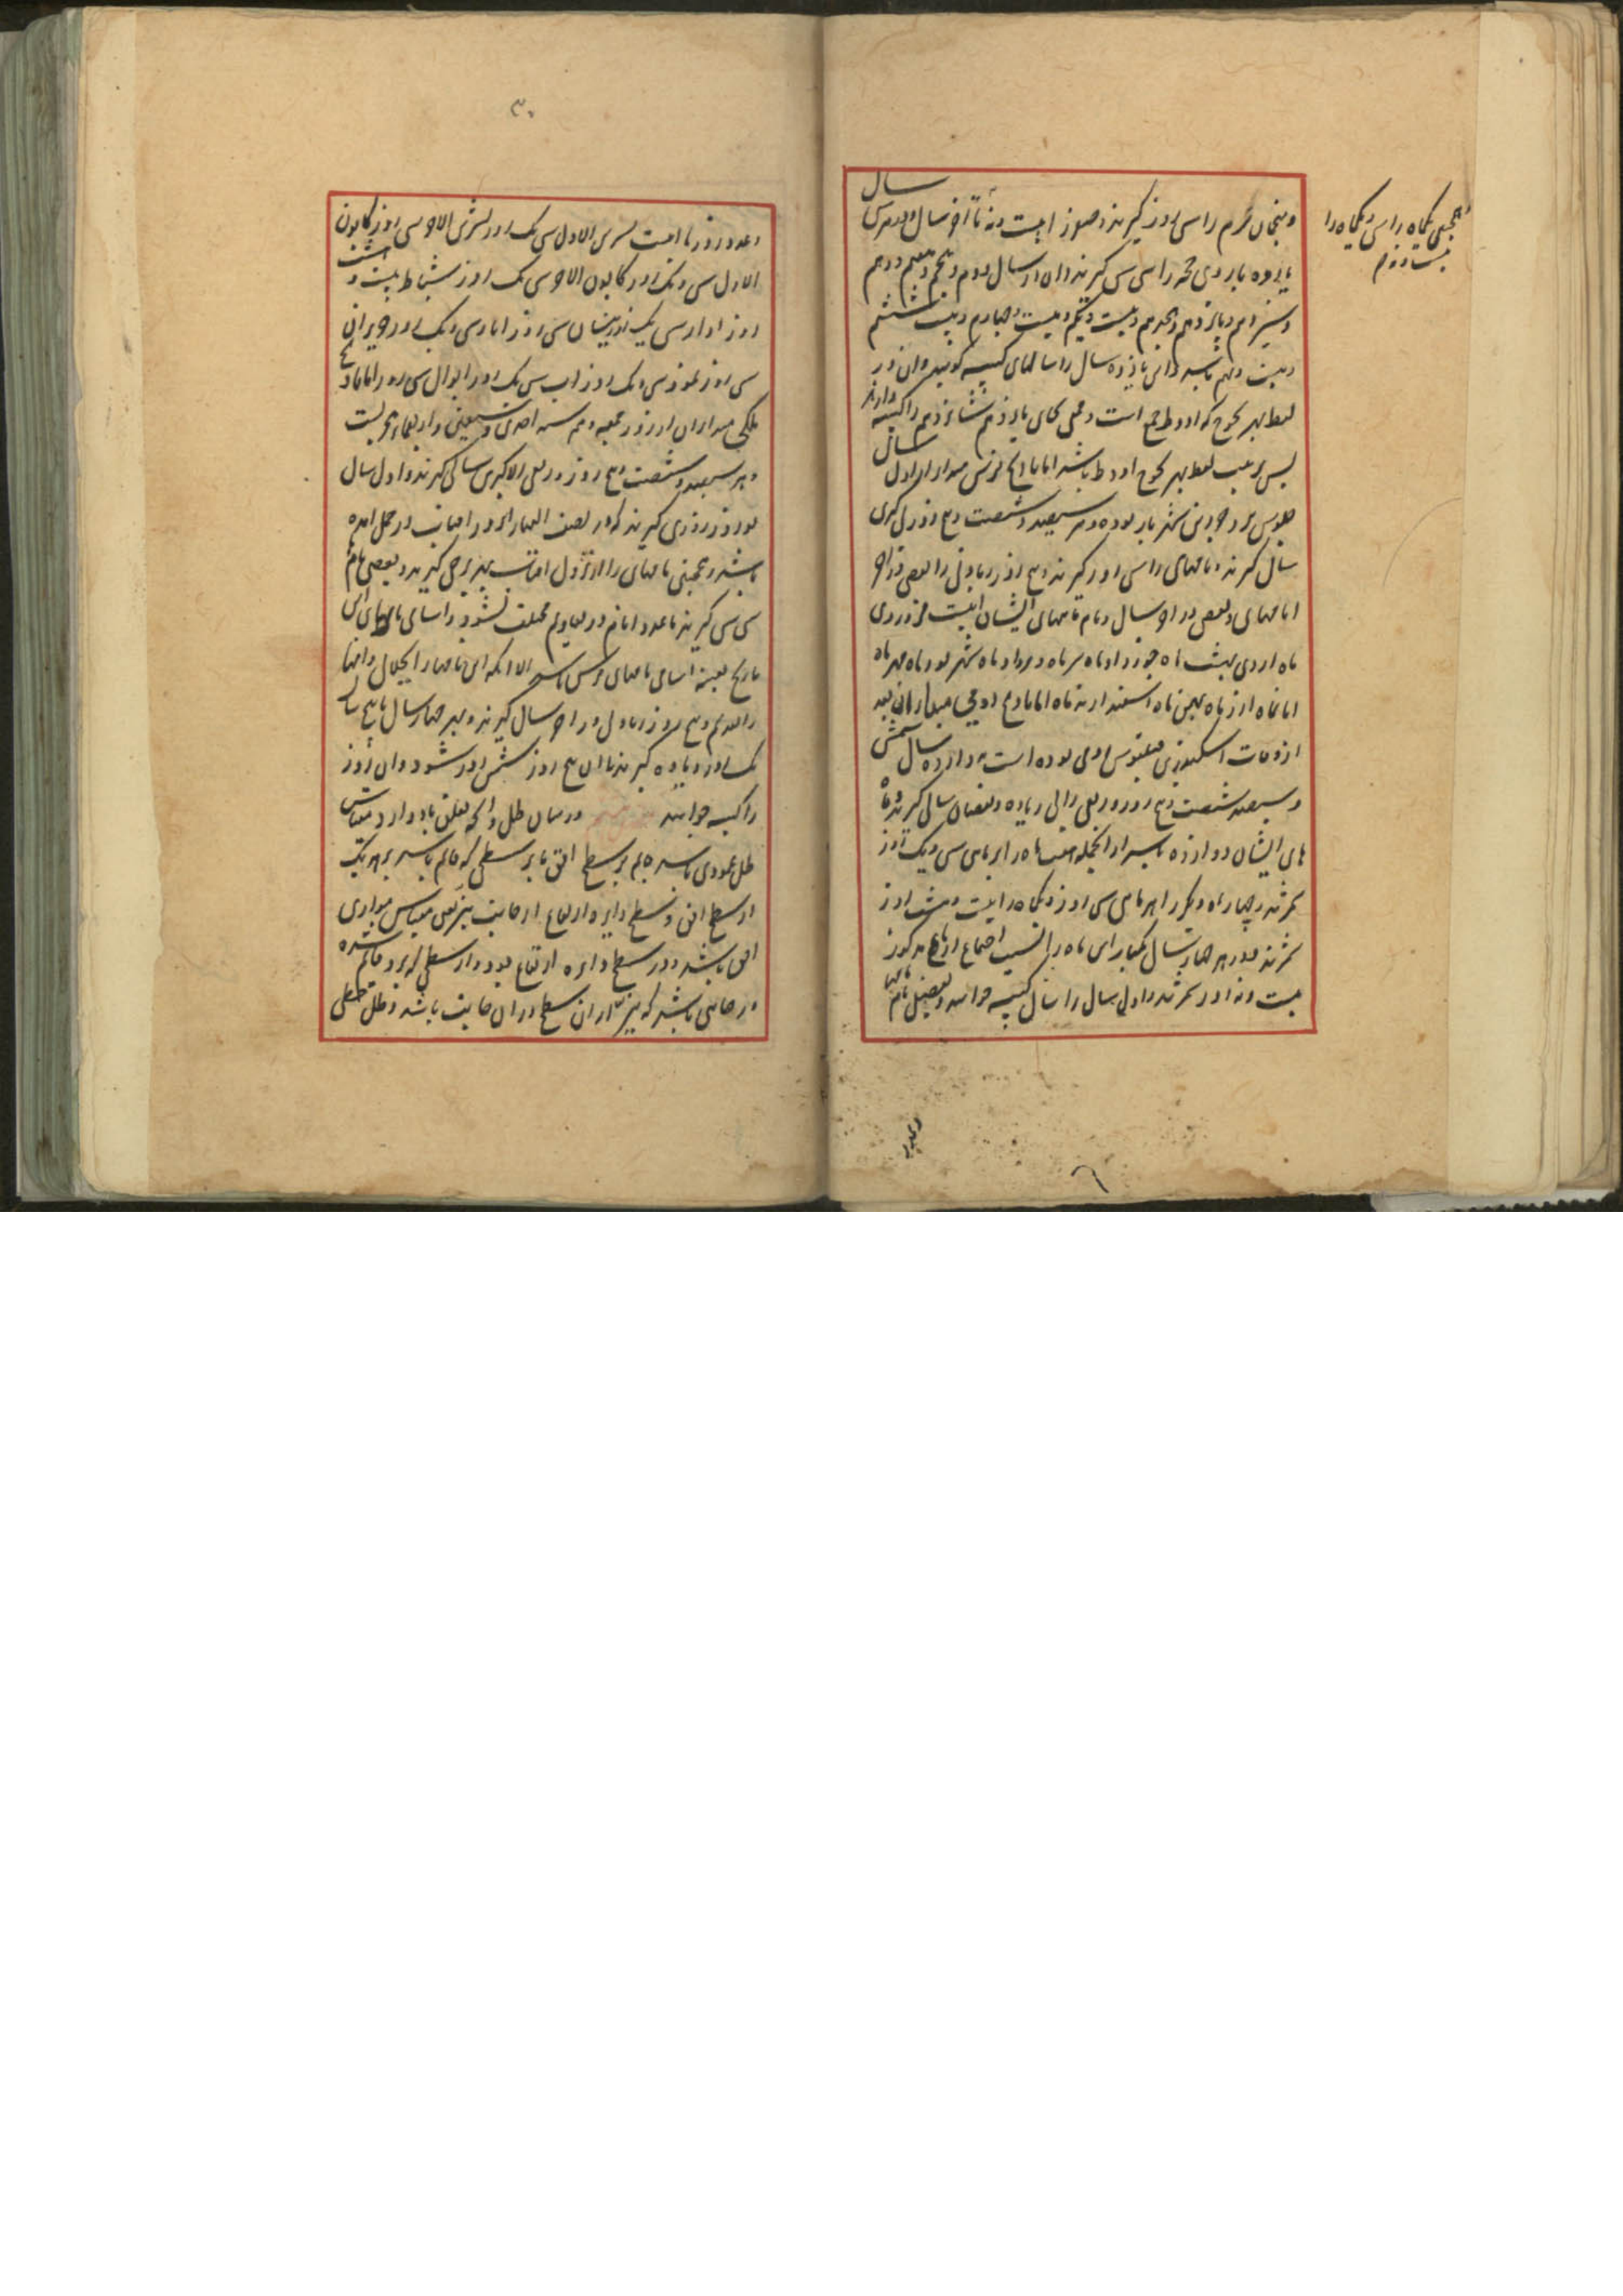 سال
و منجمان محرم را سی روز گیرند و صفر را بیست و نه تا آخر سال و در هر سی
یازده بار ذی حجه را سی گیرند و آن در سال دوم و پنجم و هفتم و دهم
و سیزدهم و پانزدهم و هجدهم و بیست و یکم و بیست و چهارم و بیست و ششم
و بیست و نهم باشد و این یازده سال را سالهای کبیسه گویند و آن در
لفظ بهر یحوح کادوط جمع است و بعضی بجای پانزدهم شانزدهم را کبیسه دارند
پس ترتیب لفظ بهر یحوح ادوط باشد اما تاریخ فرس مبدأ آن از اول سال
جلوس یزدجرد بن شهریار بوده و هر سیصد و شصت و پنج روز را
سال گیرند و ماههای را سی روز گیرند و پنج روز زیادتی را بعضی در آخر
آبان ماه و بعضی در آخر سال و نام ماههای ایشان اینست فروردین
ماه اردی بهشت ماه خرداد ماه تیر ماه مرداد ماه شهریور ماه مهر ماه
آبان ماه آذر ماه دی ماه بهمن ماه اسفندارمذ ماه اما تاریخ رومی مبدأ آن بعد
از وفات اسکندر بن فیلقوس رومی بوده است به دوازده سال شمسی
و سیصد و شصت و پنج روز و ربعی را بی زیاده و نقصان سالی گیرند و ماه
های ایشان دوازده باشد از آن جمله هفت ماه را هر ماهی سی و یک روز
شمرند و چهار ماه دیگر را هر ماهی سی روز و یکماه را بیست و هشت روز
شمرند و در هر چهار سال یکبار این ماه را بسبب اجتماع ارباع مذکور
بیست و نه روز شمرند و آن سال را سال کبیسه خوانند و تفصیل نام ماهها
همچنین یکماه را سی و یکماه را
بیست و نهم
۳۰
و عدد روزها اینست تشرین الاول سی و یک روز تشرین الآخر سی روز کانون
الاول سی و یک روز کانون الآخر سی و یک روز شباط بیست و هشت
روز آذار سی و یک روز نیسان سی روز ایار سی و یک روز حزیران
سی روز تموز سی و یک روز آب سی و یک روز ایلول سی روز اما تاریخ
ملکی مبدأ آن از روز جمعه دهم سنه احدی و سبعین و اربعمائه هجریست
و هر سیصد و شصت و پنج روز و ربعی الا کسری سالی گیرند و اول سال
نوروز روزی گیرند که در نصف النهار آن روز آفتاب در حمل آمده
باشد و همچنین ماههای را از نزول آفتاب بهر برجی گیرند و بعضی ماهها
سی سی گیرند تا عدد ایام در تقاویم مختلف نشود و اسامی ماههای این
تاریخ بعینه اسامی ماههای فرس باشد الا آنکه این ماهها را بجلالی و آنها
را بقدیم و پنج روز زیادتی در آخر سال گیرند و بهر چهار سال یا پنج سال
یک روز زیاده گیرند تا آن پنج روز شش روز شود و آن روز
را کبیسه خوانند در بیان ظل و آنچه تعلق بدو دارد مقیاس
ظل عمودی باشد قایم بر سطح افق یا بر سطحی که قایم باشد بر هر یک
از سطح افق و سطح دایره ارتفاع از جانب نیر یعنی مقیاس موازی
افق باشد و در سطح دایره ارتفاع بود و از سطحی که برو قایم شده
در جانبی باشد که نیز از آن سطح در آن جانب باشد و ظل خطی